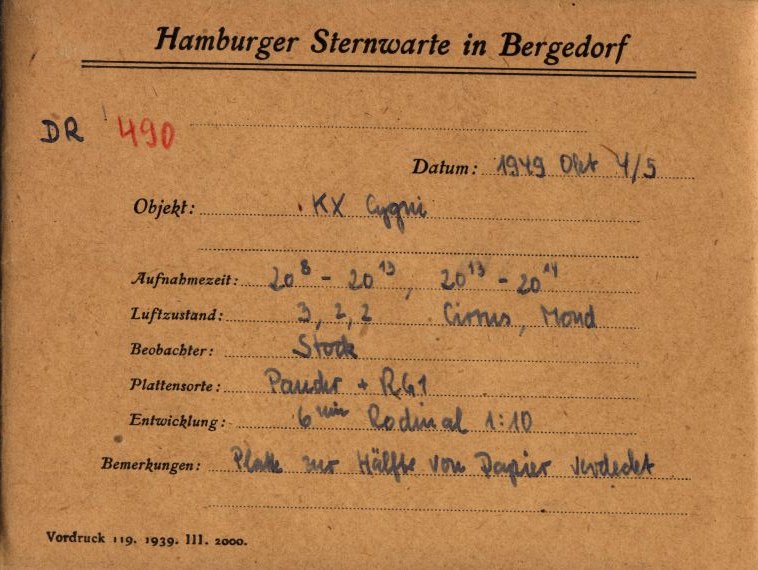 Hamburger Sternwarte in Bergedorf
DR 490
Datum: 1949 Okt 4/5
Objekt: KX Cygni
Aufnahmezeit: 20⁸ - 20¹³, 20¹³ - 20¹⁴
Luftzustand: 3, 2, 2 Cirrus, Mond
Beobachter: Stock
Plattensorte: + RG1
Entwicklung: 6 min Rodinal 1:10
Bemerkungen: Platte zur Hälfte von Papier verdeckt
Vordruck 119. 1939. III. 2000.